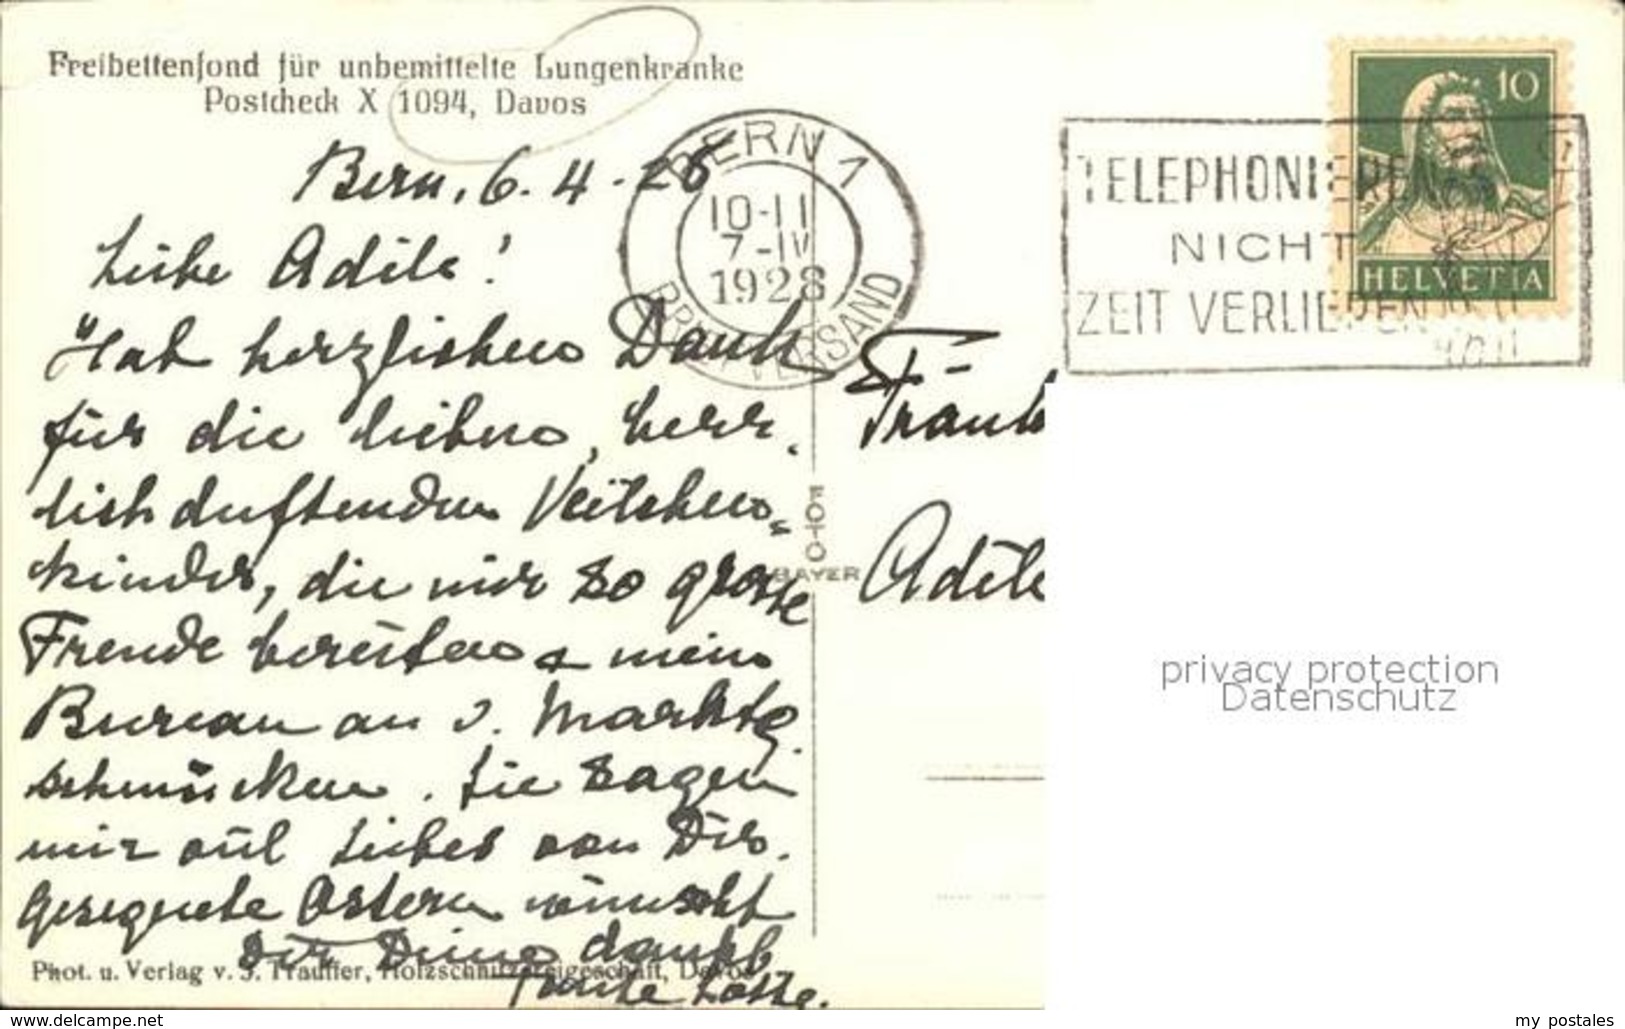 Freibettenfond für unbemittelte Lungenkranke
Postcheck X 1094, Davos
Bern, 6. 4. 28
Liebe Adile!
Hab herzlichen Dank
für die lieben, herr-
lich duftenden Veilchen-
kinder, die mir so grosse
Freude bereiten & mein
Bureau an d. Marktg.
schmücken. Sie sagen
mir viel Liebes von Dir.
Gesegnete Ostern wünscht
Dir Deine dankb.
Tante Lotte.
Phot. u. Verlag v. J. Trauffer, Holzschnitzereigeschäft, Davos
BERN 1
10-11
7-IV
1928
BRIEFVERSAND
FOTO
BAYER
TELEPHONIEREN
NICHT
ZEIT VERLIEREN
10
HELVETIA
Fräul
Adile
privacy protection
Datenschutz
www.delcampe.net
my_postales